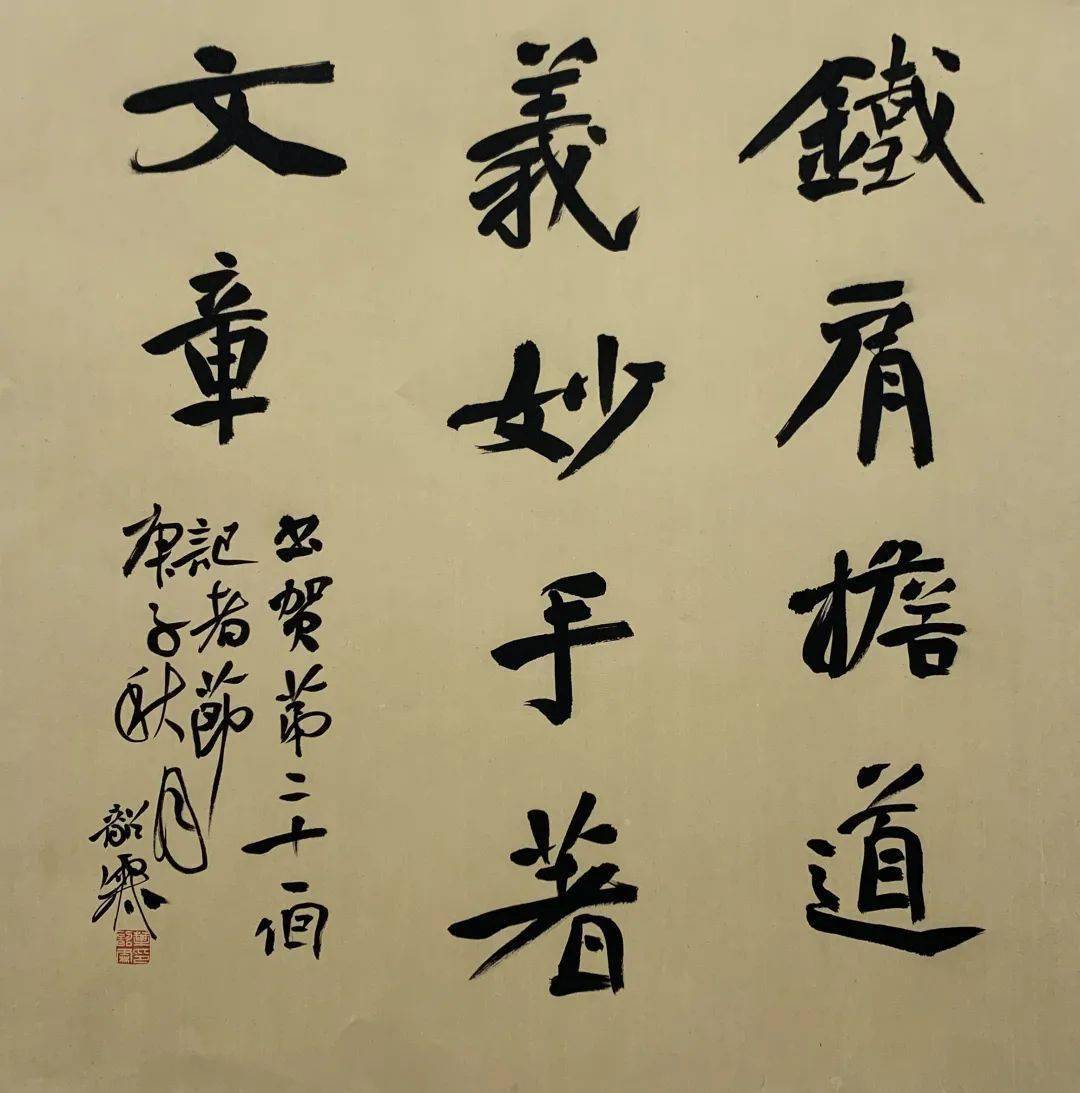 鐵肩擔道
義妙手著
文章
書贺第二十一個
記者節
庚子秋月
韶